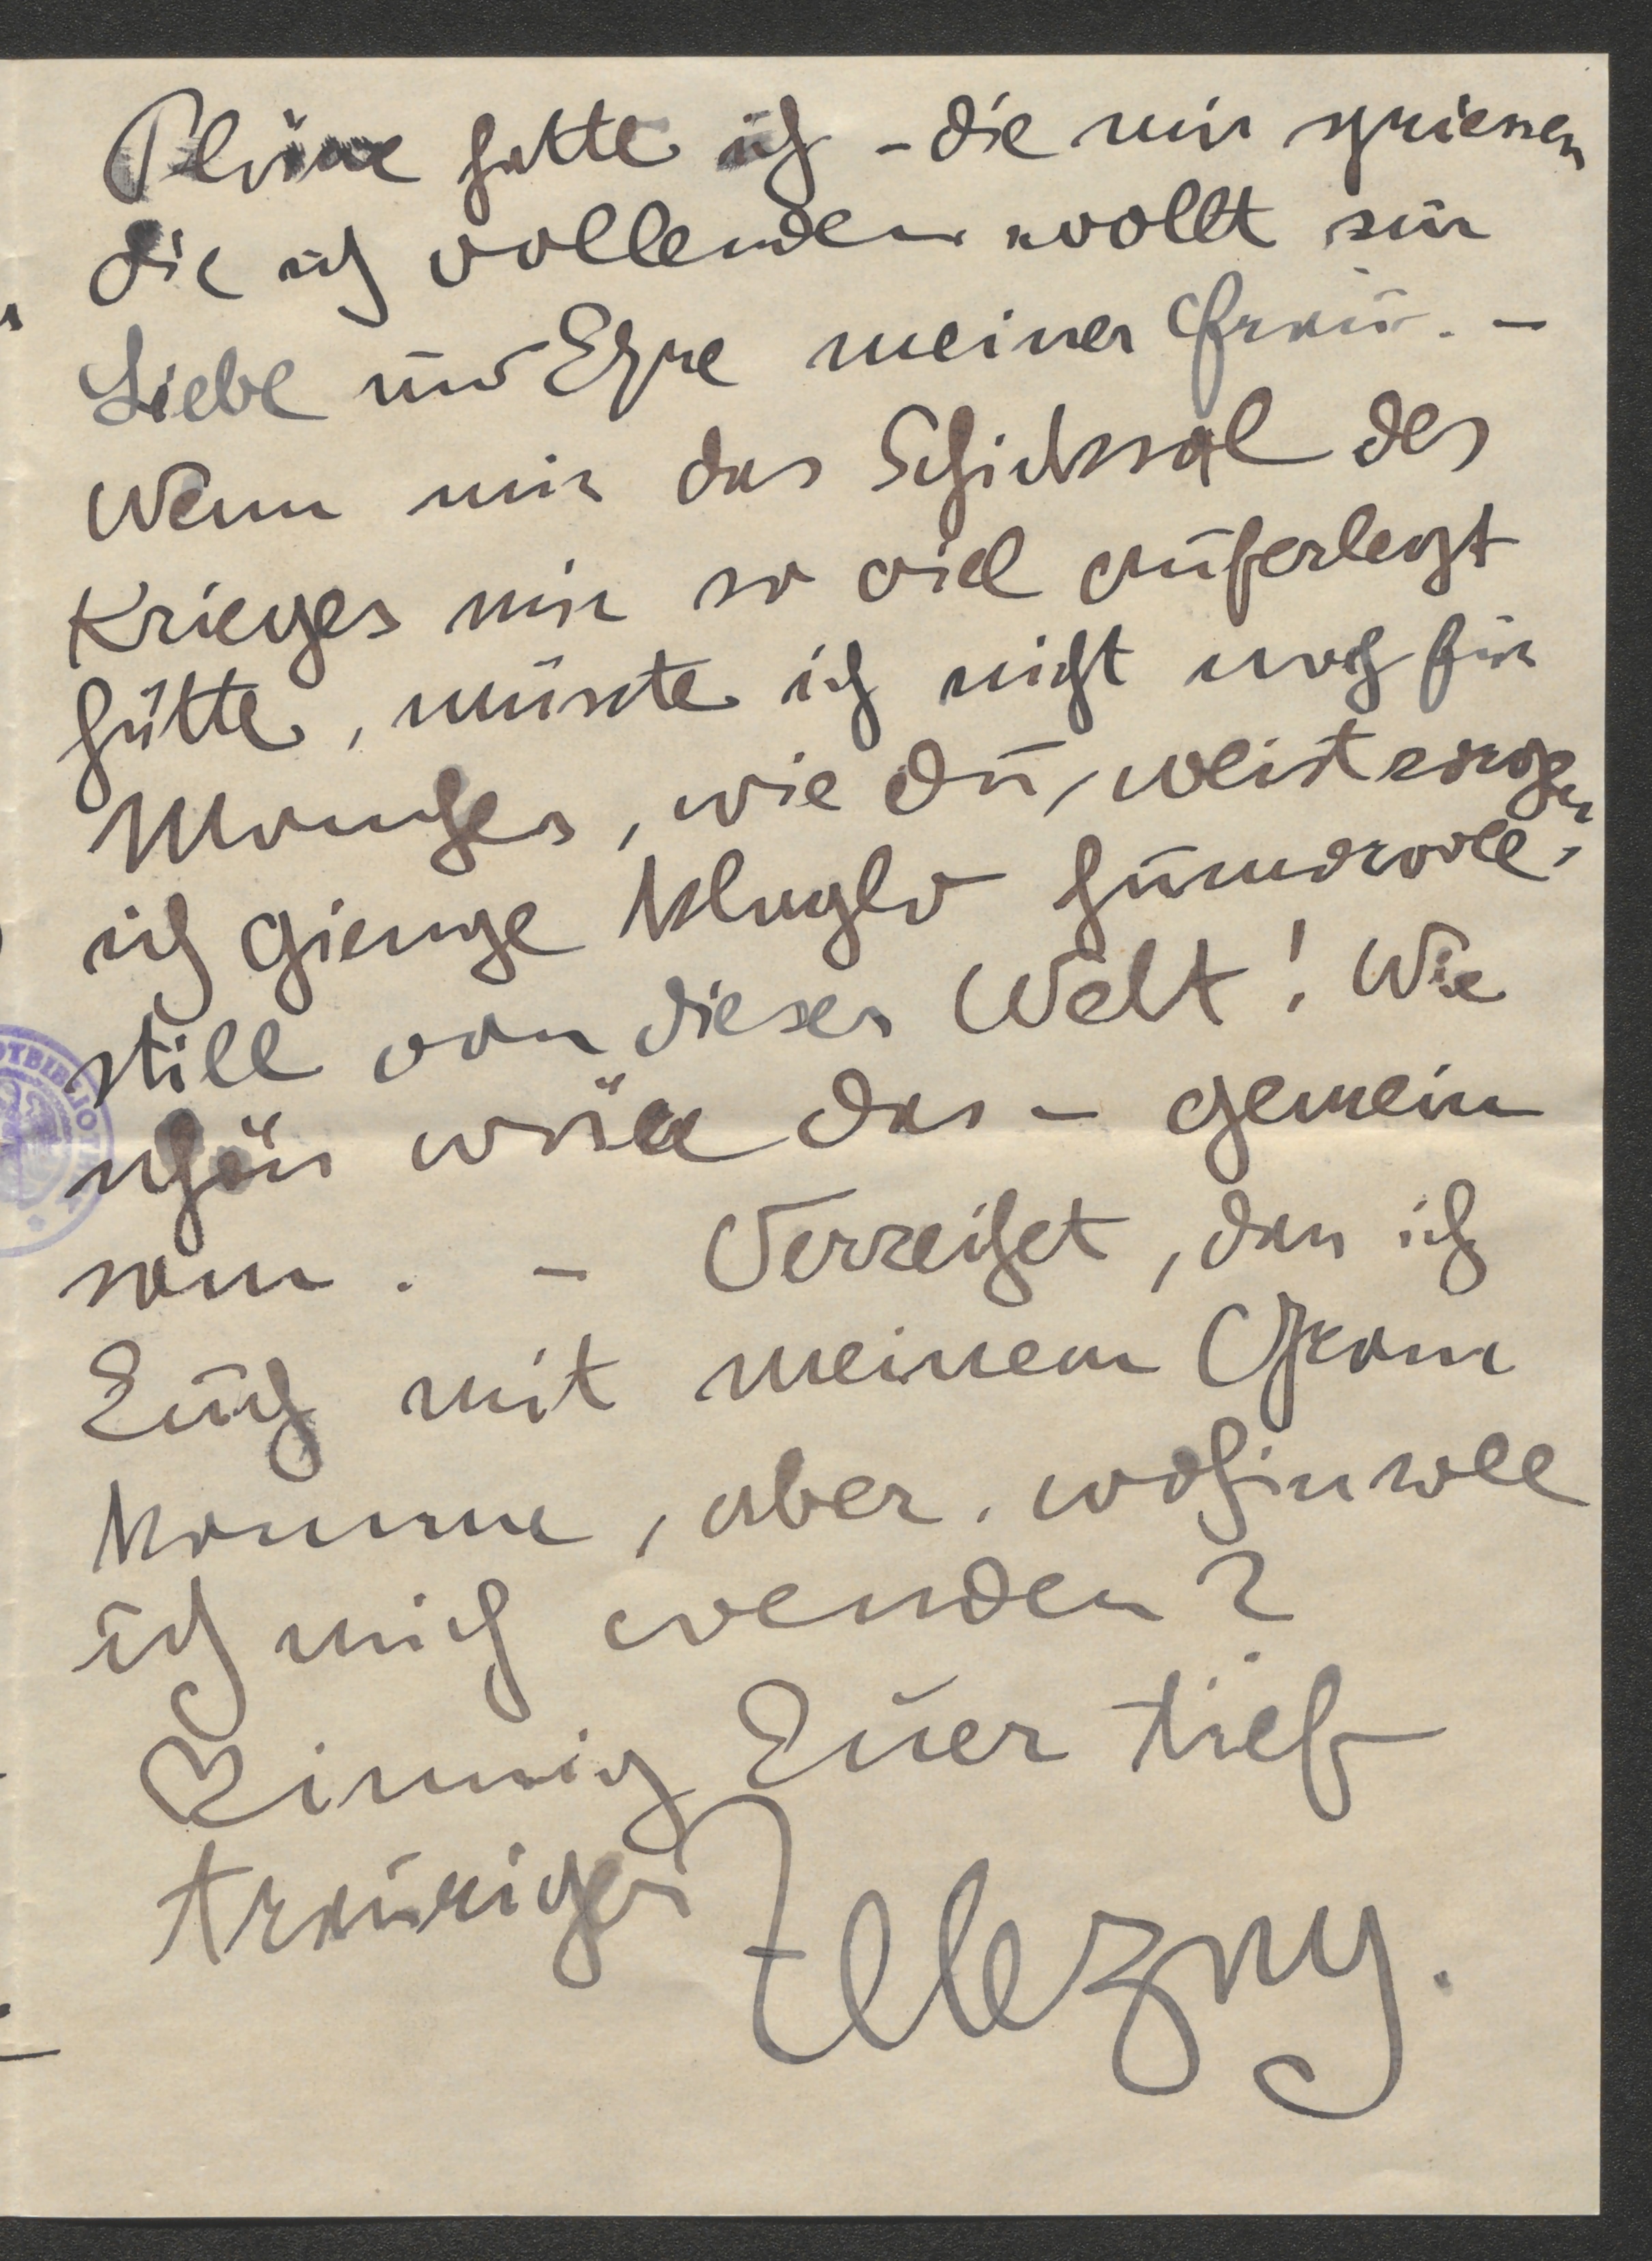 Pläne hatte ich - die nun spriessen
die ich vollenden wollt zur
Liebe und Ehre meiner Frau. -
Wenn mir das Schicksal des
Krieges nur so viel auferlegt
hätte, müsste ich nicht noch für
Manches, wie Du, weist sorgen
ich gienge klaglo
still von dieser Welt! Wie
schön wäre das - gemein
sam. - Verzeihet, dass ich
Euch mit meinem Gram
komme, aber, wohin soll
ich mich wenden?
♡ innig Euer tief
trauriger Zelezny.
BIBLIOTHEK